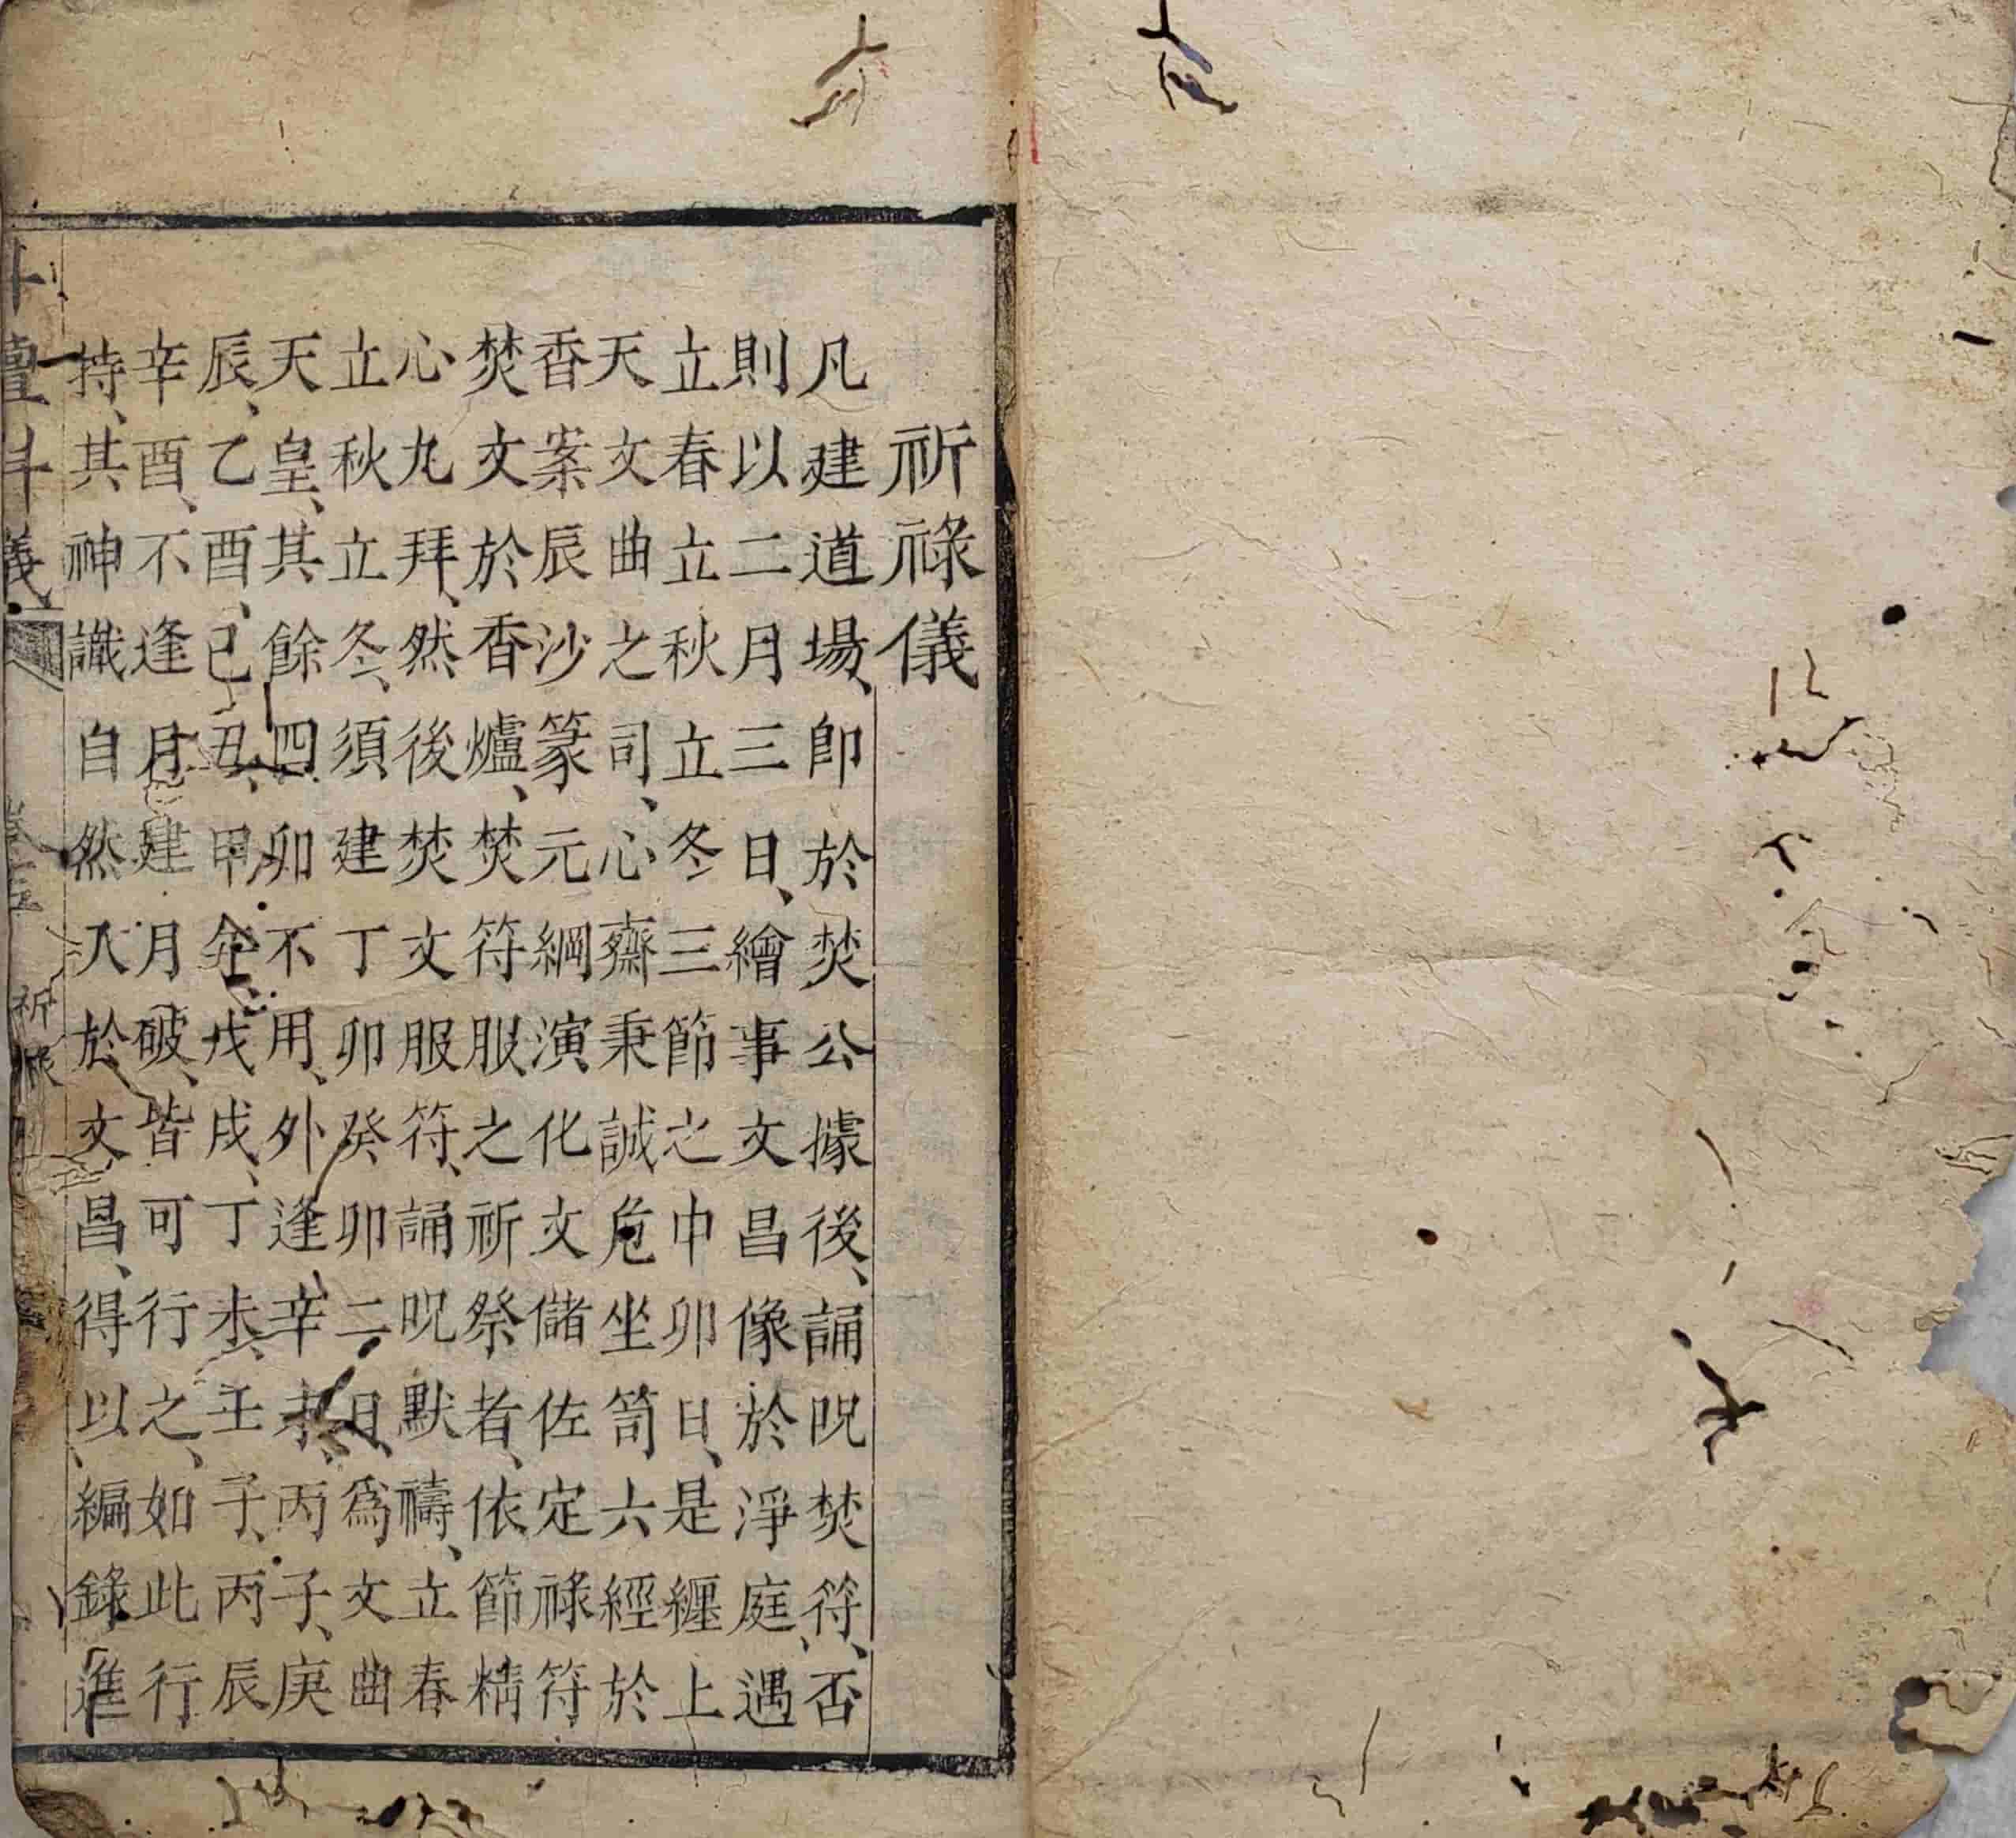 祈祿儀
凡建道場、卽於焚公據後、誦呪焚符、否
則以二月三日、繪事文昌像於淨庭、遇
立春立秋立冬三節之中卯日、是纏上
天文曲之司、心齋秉誠危坐笥六經於
香案辰沙篆元綱演化文儲佐定祿符
焚文於香爐、焚符服之祈祭者、依節精
心九拜、然後焚文服符、誦呪默禱、立春
立秋立冬、須建丁卯癸卯二日、爲文曲
天皇、其餘四卯不用、外逢辛未、丙子、庚
辰、乙酉、已丑、甲午、戊戌、丁未、壬子、丙辰
辛酉、不逢月建月破、皆可行之、如此行
持、其神識自然入於文昌、得以、編錄進
壇斗儀 卷五 祈祿